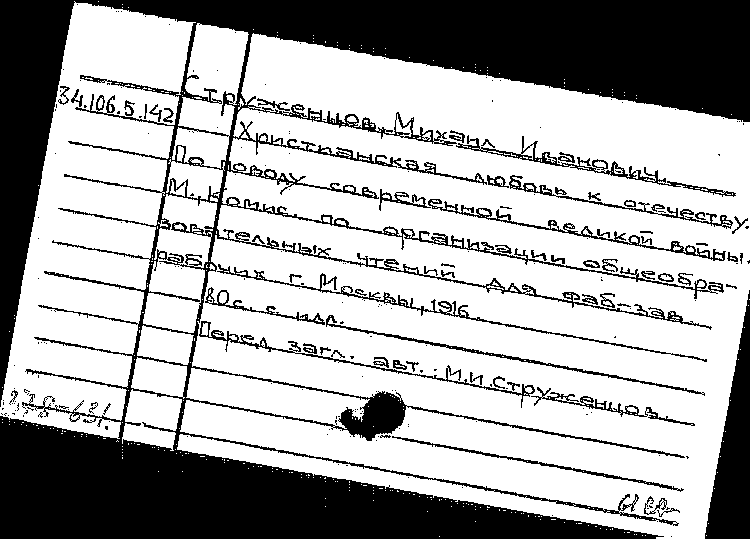 Струженцов, Михаил Иванович.
34.106.5.142
Христианская любовь к отечеству.
По поводу современной великой войны.
М., Комис. по организации общеобра-
зовательных чтений для фаб-зав.
рабочих г. Москвы, 1916.
80с. с илл.
Перед загл. авт.: М.И.Струженцов.